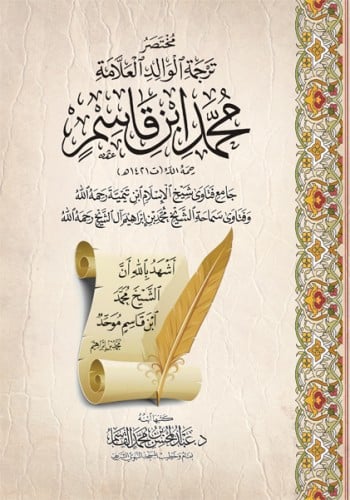 مُخْتَصَرُ
تَرْجَمَةِ الْوَالِدِ الْعَلَّامَةِ
مُحَمَّد ابْنِ قَاسِمٍ
رحمه الله (ت ١٤٢١هـ)
جَامِعِ فَتَاوَى شَيْخِ الْإِسْلَامِ ابْنِ تَيْمِيَّةَ رَحِمَهُ اللهُ
وَفَتَاوَى سَمَاحَةِ الشَّيْخِ مُحَمَّدِ بْنِ إِبْرَاهِيمَ آلِ الشَّيْخِ رَحِمَهُ اللهُ
أَشْهَدُ بِاللهِ أَنَّ
الشَّيْخَ مُحَمَّد
ابْنَ قَاسِمٍ مُوَحِّدٌ
محمد بن إبراهيم
كتبها ابنه
د. عبد المحسن بن محمد القاسم
إمام وخطيب المسجد النبوي الشريف